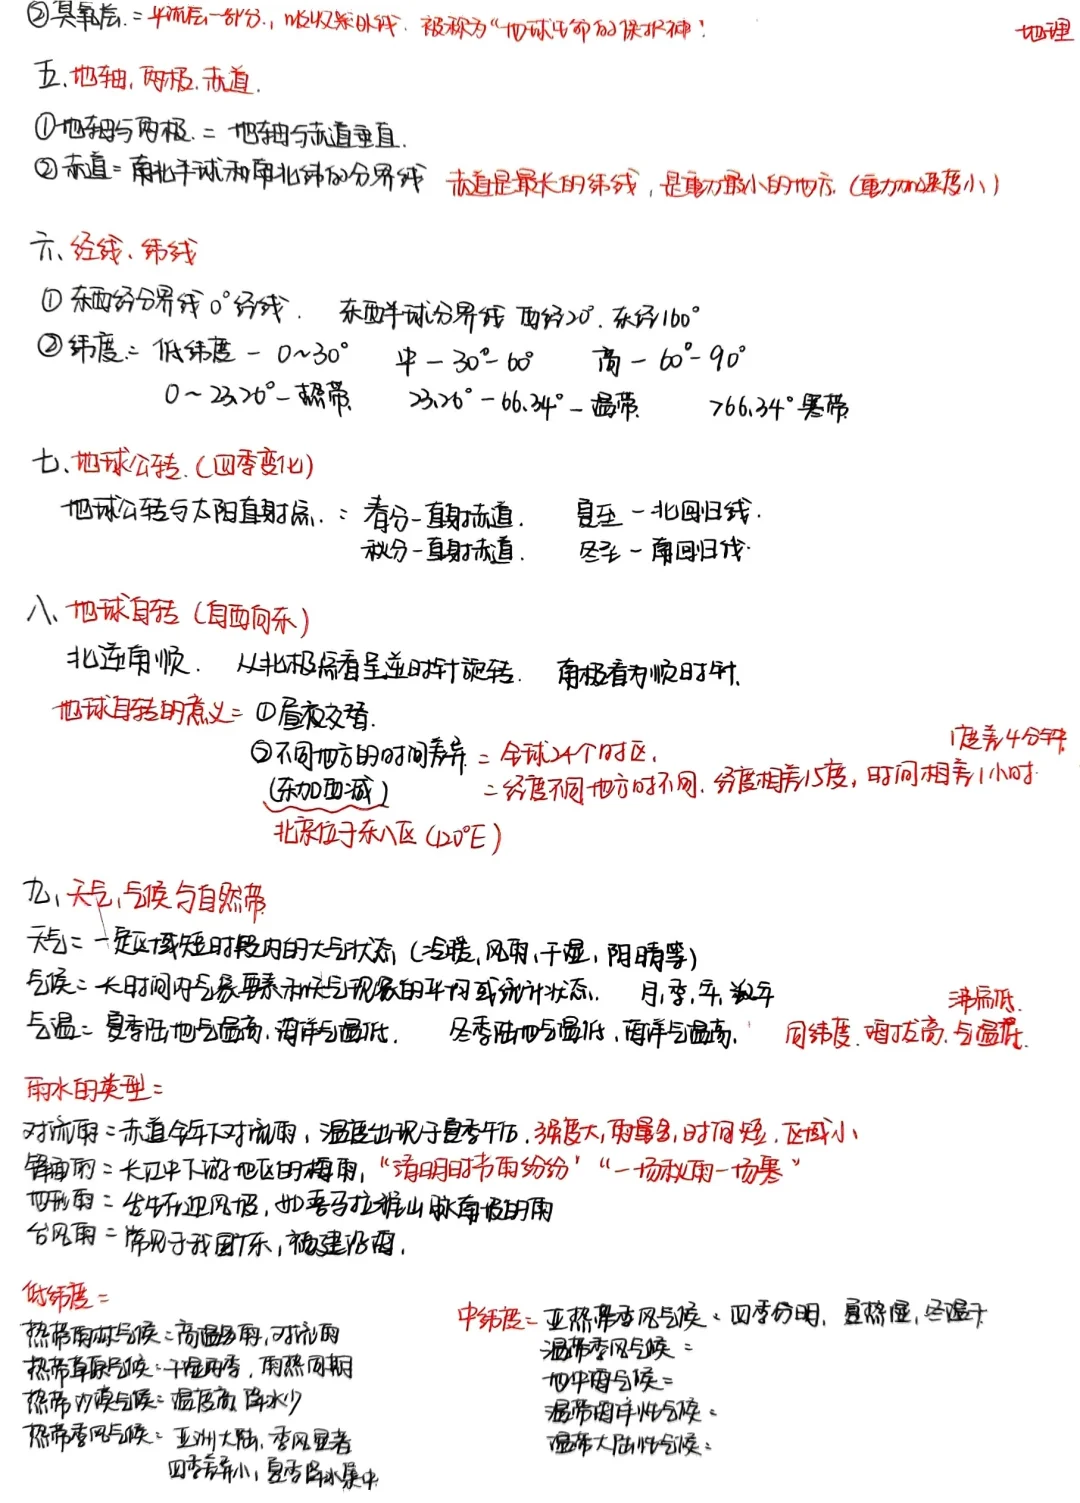 ②臭氧层:=平流层一部分,吸收紫外线.被称为"地球生命的保护神!
地理
五.地轴,两极.赤道.
①地轴与两极.=地轴与赤道垂直.
②赤道=南北半球和南北纬的分界线 赤道是最长的纬线,是重力最小的地方.(重力加速度小)
六、经线、纬线
①东西经分界线0°经线. 东西半球分界线 西经20°.东经160°
②纬度:=低纬度-0~30° 中-30°-60° 高-60°-90°
0~23.26°-热带 23.26°-66.34°-温带 >66.34°寒带
七、地球公转.(四季变化)
地球公转与太阳直射点.=春分-直射赤道. 夏至-北回归线.
秋分-直射赤道. 冬至-南回归线.
八、地球自转(自西向东)
北逆南顺. 从北极点看呈逆时针旋转. 南极看为顺时针.
地球自转的意义=①昼夜交替.
1度差4分钟
②不同地方的时间差异=全球24个时区.
(东加西减) =经度不同地方时不同.经度相差15度,时间相差1小时.
北京位于东八区(120°E)
九、天气,气候与自然带
天气=一定区域短时段内的大气状态(冷暖,风雨,干湿,阴晴等)
气候=长时间内气象要素和天气现象的平均或统计状态. 月,季,年,数年
沸点低.
气温=夏季陆地气温高,海洋气温低. 冬季陆地气温低,海洋气温高. 同纬度.海拔高.气温低.
雨水的类型=
对流雨=赤道全年下对流雨,温度出现于夏季午后.强度大,雨量多,时间短.区域小
锋面雨=长江中下游地区的梅雨,"清明时节雨纷纷""一场秋雨一场寒"
地形雨=发生在迎风坡,如喜马拉雅山脉南坡的雨
台风雨=常见于我国广东,福建沿海.
低纬度=
热带雨林气候=高温多雨,对流雨
热带草原气候=干湿两季,雨热同期
热带沙漠气候=温度高,降水少
热带季风气候=亚洲大陆,季风显著
四季差异小,夏季降水集中
中纬度=亚热带季风气候=四季分明,夏热湿,冬温干
温带季风气候=
地中海气候=
温带海洋性气候=
温带大陆性气候=